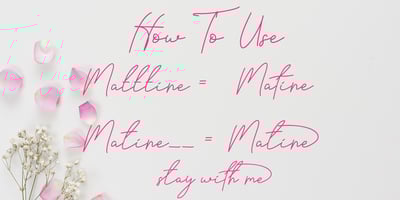 How To Use
Matttine = Matine
Matine__ = Matine
stay with me